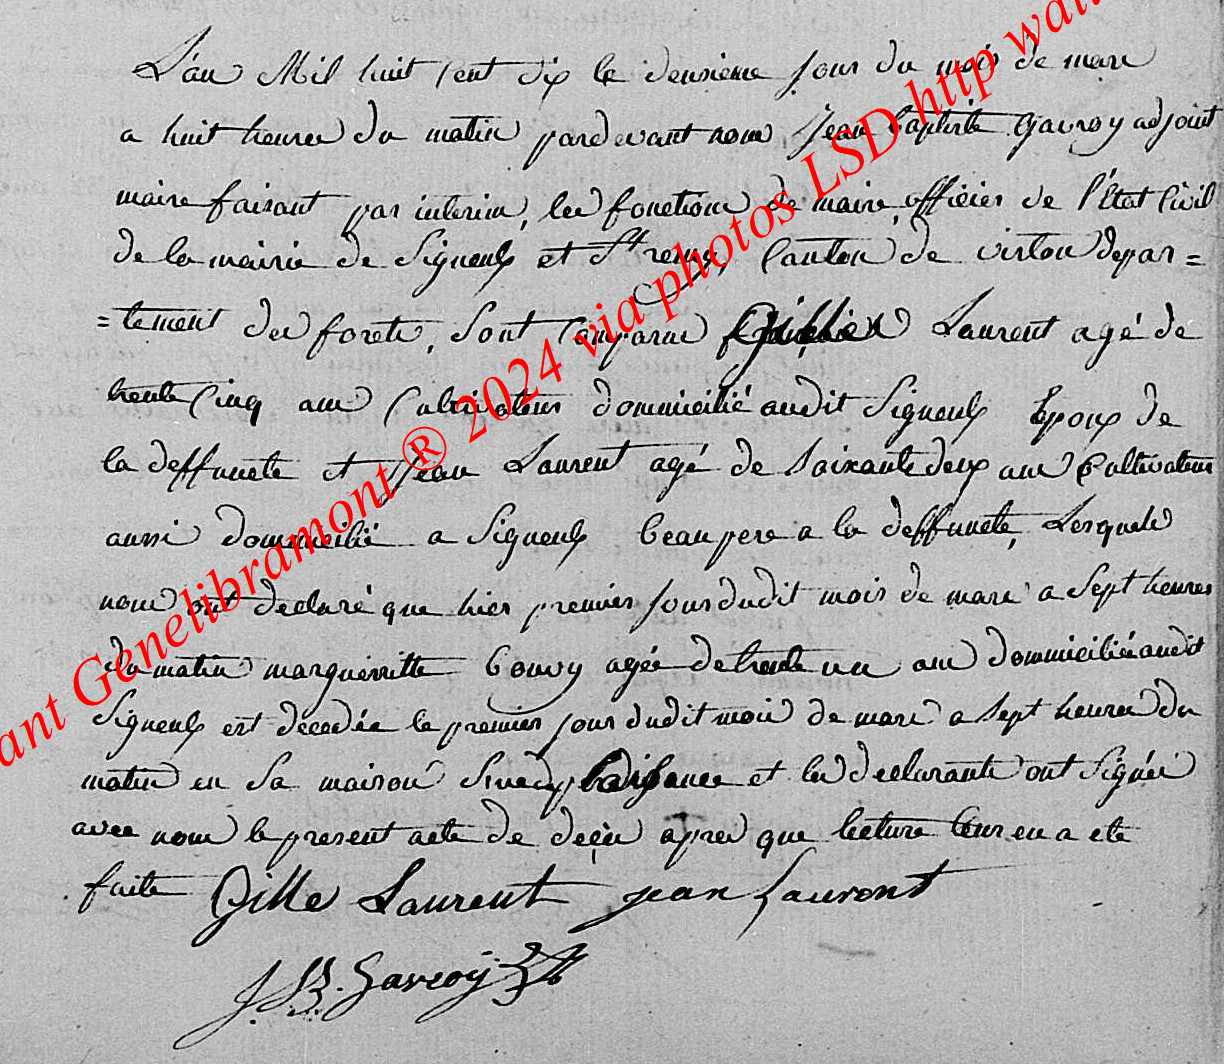 L'an Mil huit Cent dix le deuxieme jour du mois de mars
a huit heures du matin pardevant nous Jean Baptiste Gavroy adjoint
maire faisant par interim, les fonctions de maire, officier de l'état Civil
de la mairie de Signeulx et St remy, Canton de virton depar=
=tement des forets, Sont Comparus Laurent agé de
trente Cinq ans Cultivateur dommicilié audit Signeulx Epoux de
la deffuncte et Jean Laurent agé de Soixante deux ans Cultivateur
aussi dommicilié a Signeulx beau pere a la deffuncte, Lesquels
nous ont declaré que hier premier jour dudit mois de mars a Sept heures
du matin marguerritte Gouvy agée de trente un ans dommiciliée audit
Signeulx est décédée le premier jour dudit mois de mars a Sept heures du
matin en Sa maison et les declarants ont Signés
avec nous le present acte de decès apres que lecture leur en a été
faite Gille Laurent jean Lauront
J.B. Gavroy
ant Genelibramont ® 2024 via photos LSD http wall